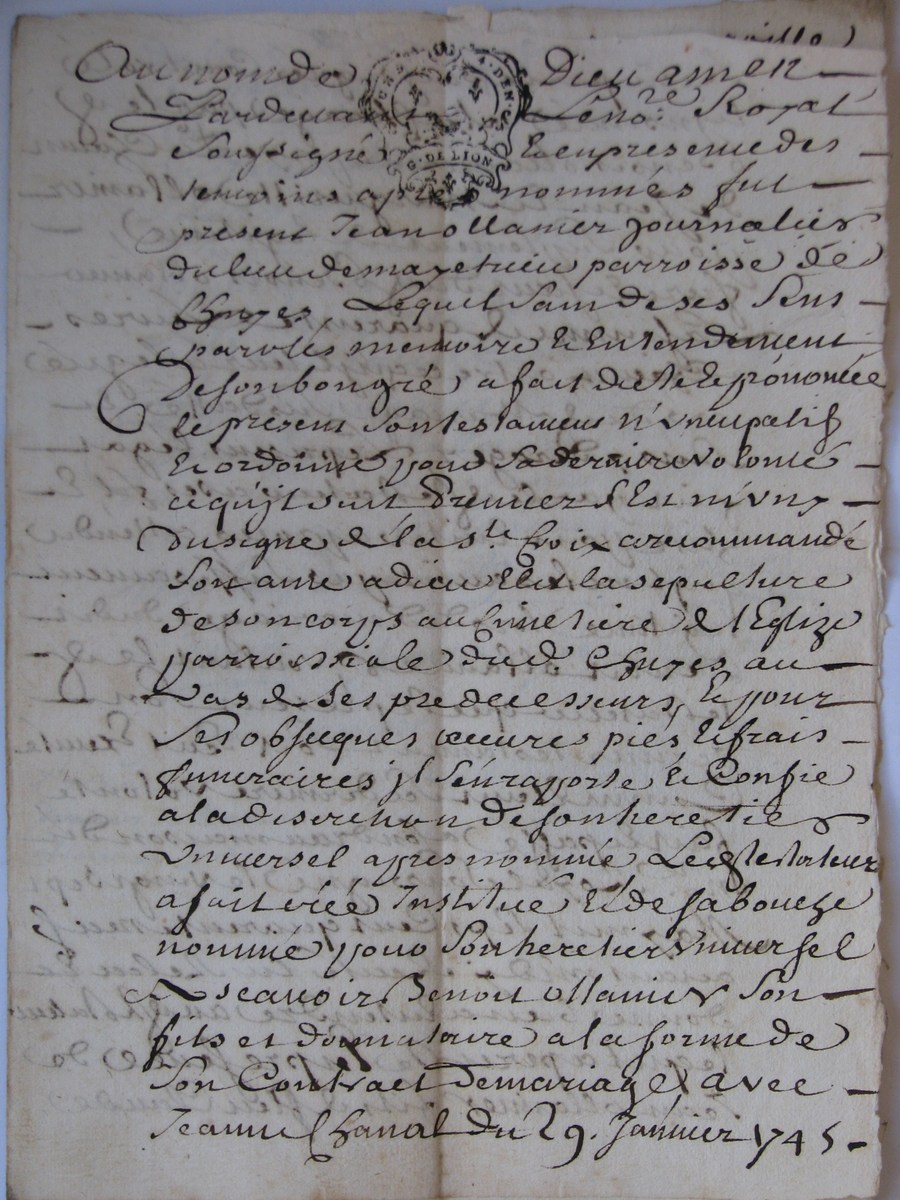 Au nom de Dieu amen
Pardevant Le no.re Royal
Soussigné & en presence des
temoins apres nommés fut
present Jean ollanier journalier
du lieu de parroisse de
Lequel sain de ses sens
parolles memoire & Entendement
De son bon gré a fait dicté & prononcée
le present son testament nuncupatif
& ordonne pour sa derniere volonté
ce qu'jl suit Premier s'Est muny
du signe de la s.te Croix a recommandé
son ame a dieu Elit la sepulture
de son corps au cimetiere de l'Eglize
parroissiale dud. au
vas de ses predecesseurs, & pour
ses obseques œuvres pies & frais
funeraires jl s'en rapporte & Confie
a la discretion de son heretier
universel apres nommé Led testateur
a fait créé Institué & de sa bouche
nommé pour son heretier universel
A sçavoir Benoit ollanier son
fils et donnataire a la forme de
son Contract de mariage avec
Jeanne Chanal du 29. Janvier 1745
G. DE LION